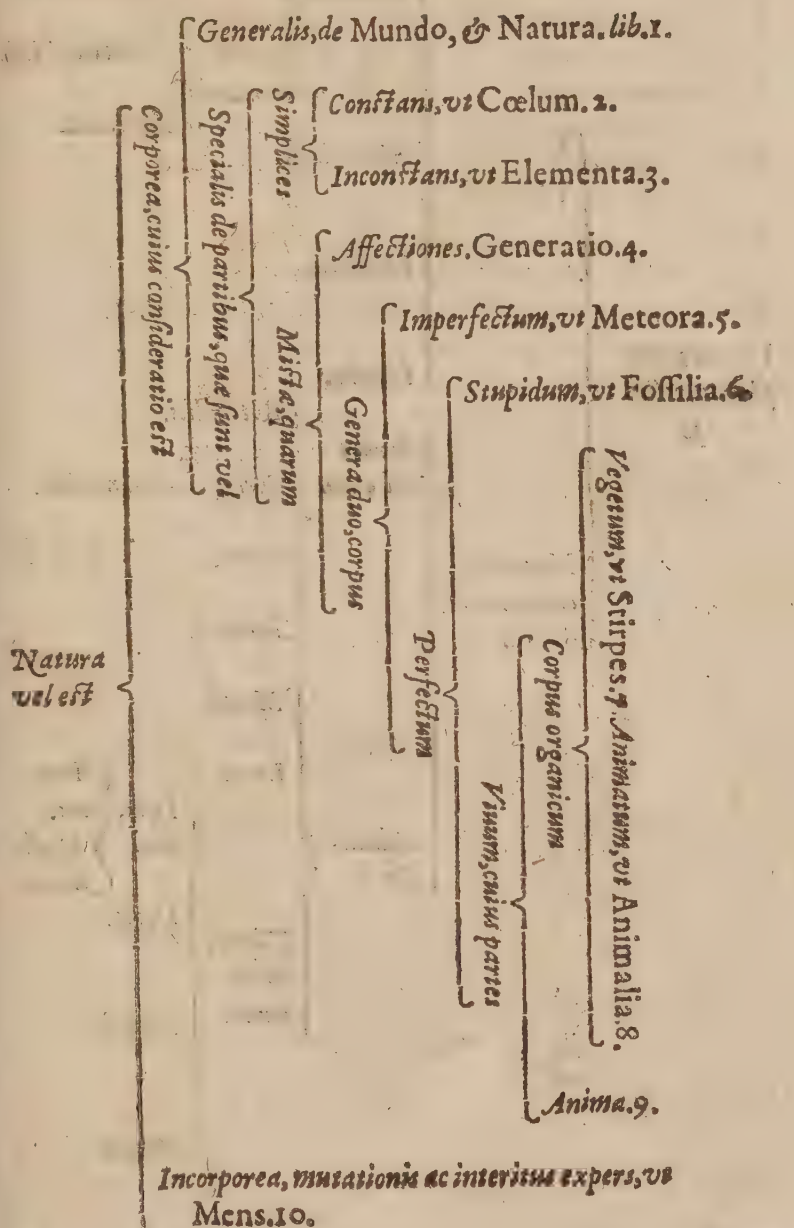 Generalis, de Mundo, & Natura. lib. 1.
Corporea, cuius consideratio est
Specialis de partibus, quæ sunt vel
Simplices
Constans, vt Cœlum. 2.
Inconstans, vt Elementa. 3.
Mistæ, quarum
Affectiones. Generatio. 4.
Genera duo, corpus
Imperfectum, vt Meteora. 5.
Perfectum
Stupidum, vt Fossilia. 6.
Viuum, cuius partes
Corpus organicum
Vegetum, vt Stirpes. 7. Animatum, vt Animalia. 8.
Anima. 9.
Natura
vel est
Incorporea, mutationis ac interitus expers, vt
Mens. 10.